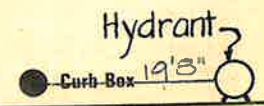 Hydrant
Curb Box 19'3"